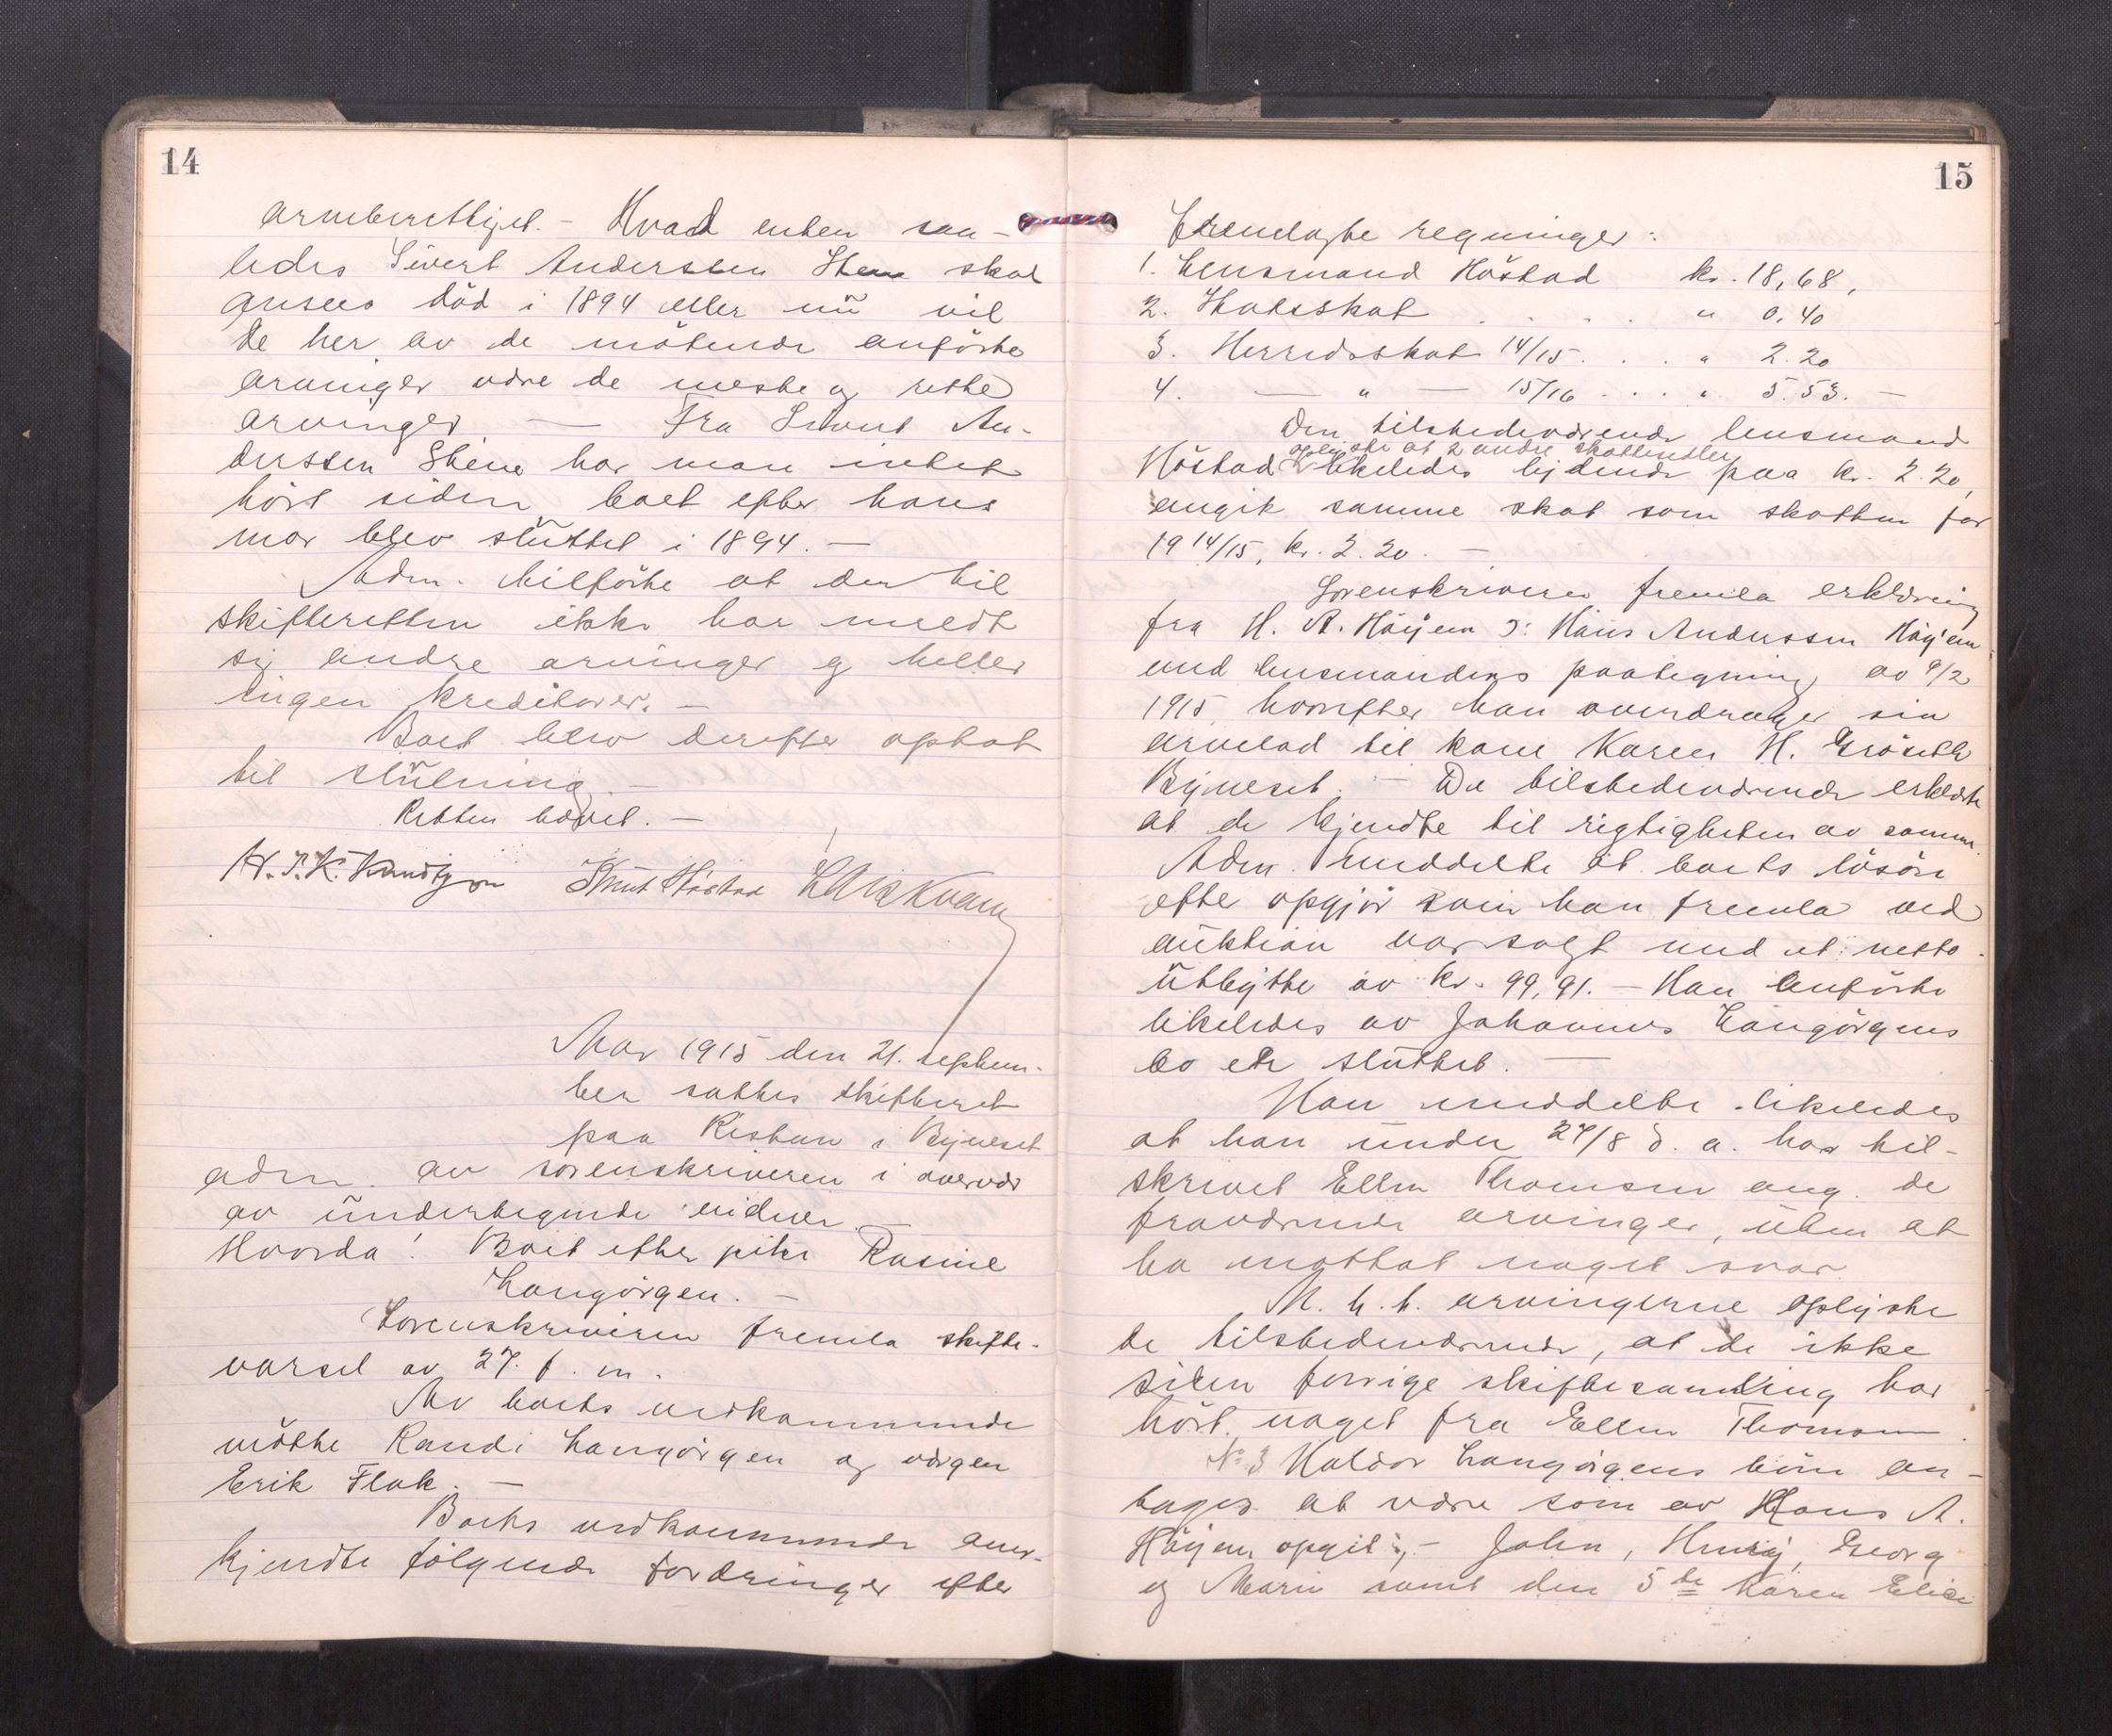 14
arveberettiget. - Hvad enten saa-
ledes Sivert Anderssen Stene skal
ansees död i 1894 eller nu vil
de her av de mötende anförte
arvinger være de neste og rette
arvinger. — Fra Sivert An-
derssen Stene har man intet
hört siden boet efter hans
mor blev sluttet i 1894. —
Adm. tilförte at der til
skifteretten ikke har meldt
sig andre arvinger og heller
ingen kreditorer. —
Boet blev derefter optat
til slutning. —
Retten hævet. —
Knut Höstad
Aar 1915 den 21. septem-
ber sattes skifteret
paa Ristan i Byneset
adm. av sorenskriveren i overvær
av undertegnede vidner. —
Hvorda! Boet efter pike Rasine
Langörgen. —
Sorenskriveren fremla skifte-
varsel av 27. f. m.
Av boets vedkommende
mötte Randi Langörgen og værgen
Erik Flak. —
Boets vedkommende aner-
kjendte fölgende fordringer efter
15
fremlagte regninger:
1. Lensmand Höstad kr. 18,68,
2. Statsskat . . . . " 0.40
3. Herredsskat 14/15 . . . " 2.20
4. — " — 15/16 . . . " 5.53. —
Den tilstedeværende lensmand
oplyste at 2 andre skattesedler
Höstad likeledes lydende paa kr. 2.20,
angik samme skat som skatten for
1914/15, kr. 2.20. —
Sorenskriveren fremla erklæring
fra H. A. Höyem ɔ: Hans Anderssen Höyem
med lensmandens paategning av 9/2
1915, hvorefter han overdrager sin
arvelod til kone Karen H. Gröseth
Byneset. — De tilstedeværende erklærte
at de kjendte til rigtigheten av samme.
Adm. meddelte at boets lösöre
efter opgjör som han fremla ved
auktion var solgt med et netto
utbytte av kr. 99,91. — Han anförte
likeledes av Johannes Langörgens
bo er sluttet. —
Han meddelte likeledes
at han under 27/8 d. a. har til-
skrevet Ellen Thomsen ang. de
fraværende arvinger, uten at
ha mottat noget svar.
M. h. t. arvingerne oplyste
de tilstedeværende, at de ikke
siden forrige skiftesamling har
hört noget fra Ellen Thomsen.
No 3 Haldor Langörgens börn an-
tages at være som av Hans A.
Höyem opgit: - John, Henry, Georg
og Marie samt den 5te Karen Elise